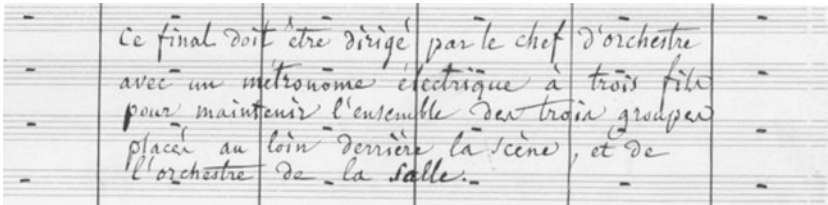 Ce final doit être dirigé par le chef d'orchestre
avec un métronome électrique à trois fils
pour maintenir l'ensemble des trois groupes
placés au loin derrière la scène, et de
l'orchestre de la salle.